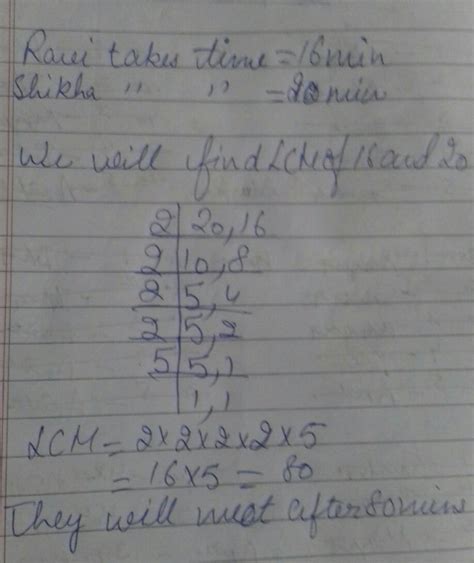 Ravi takes time = 16 min
Shikha " " = 20 min
We will find LCM of 16 and 20
2 | 20, 16
2 | 10, 8
2 | 5, 4
2 | 5, 2
5 | 5, 1
1, 1
LCM = 2×2×2×2×5
= 16×5 = 80
They will meet after 80 mins